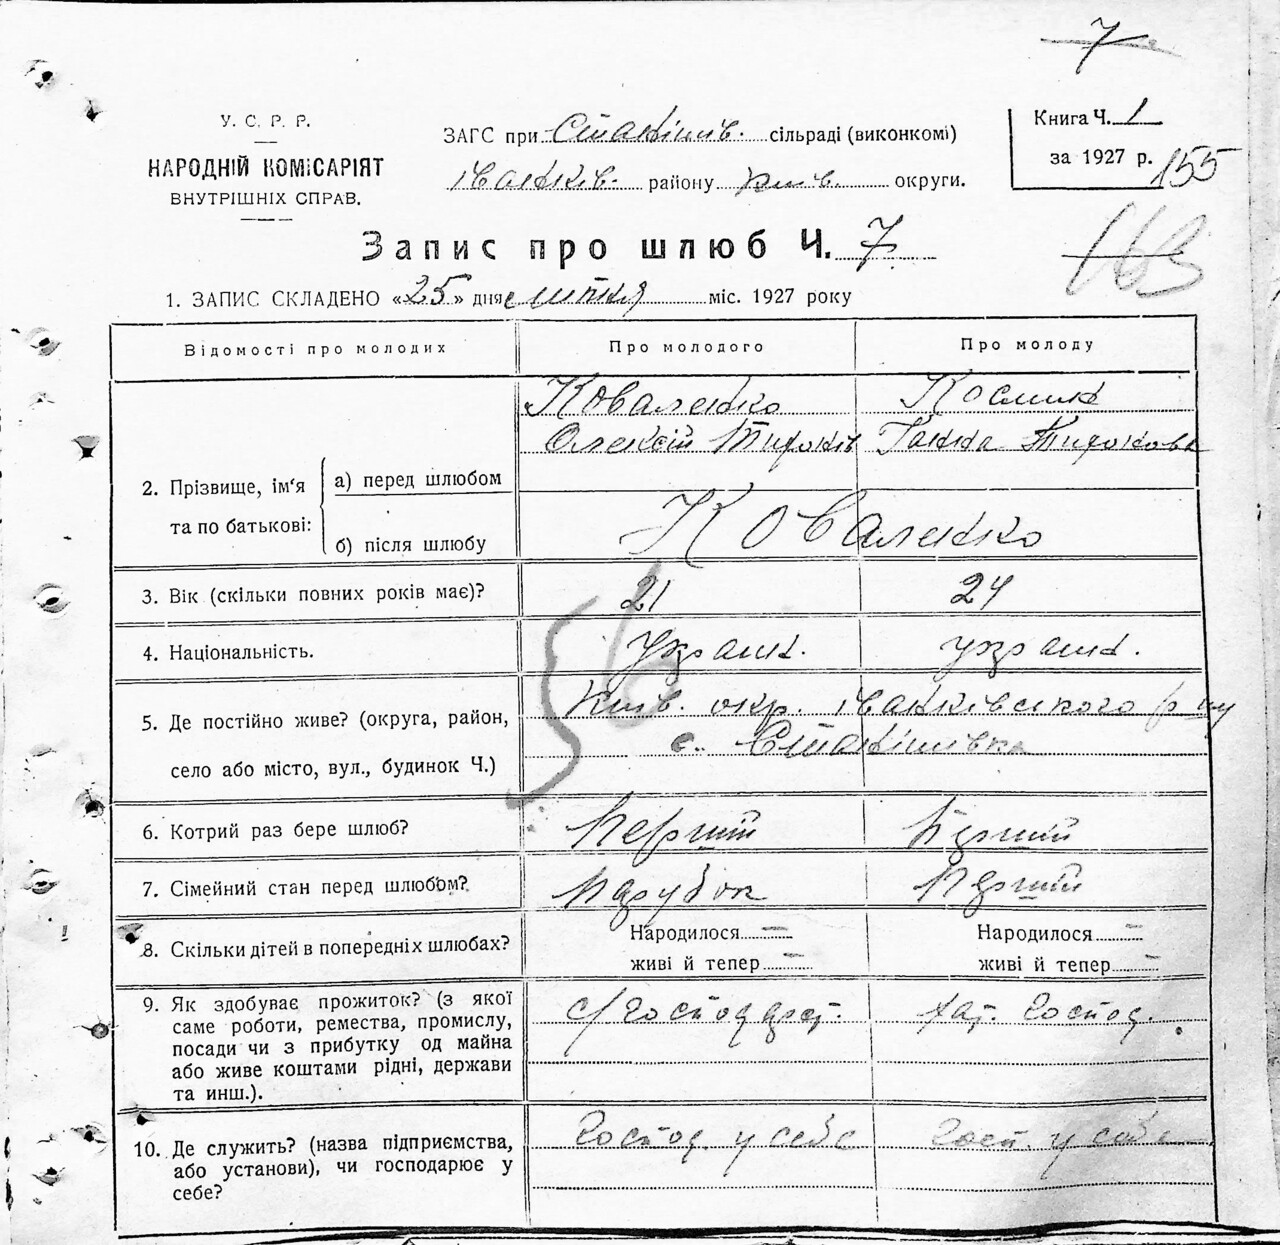 7
У. С. Р. Р.
НАРОДНІЙ КОМІСАРІЯТ
ВНУТРІШНІХ СПРАВ.
ЗАГС при Станішів. сільраді (виконкомі)
Іванків. району Київ. округи.
Книга Ч. 1
за 1927 р.
155
163
Запис про шлюб Ч. 7
1. ЗАПИС СКЛАДЕНО «25» дня липня міс. 1927 року
Відомості про молодих
Про молодого
Про молоду
2. Прізвище, ім'я та по батькові:
а) перед шлюбом
Коваленко
Олексій
Ганна
б) після шлюбу
Коваленко
3. Вік (скільки повних років має)?
21
24
4. Національність.
україн.
україн.
5. Де постійно живе? (округа, район,
село або місто, вул., будинок Ч.)
Київ. окр. Іванківського р-ну
с.
6. Котрий раз бере шлюб?
Перший
Перший
7. Сімейний стан перед шлюбом?
Парубок
Перший
8. Скільки дітей в попередніх шлюбах?
Народилося —
живі й тепер —
Народилося —
живі й тепер —
9. Як здобуває прожиток? (з якої
саме роботи, ремества, промислу,
посади чи з прибутку од майна
або живе коштами рідні, держави
та инш.).
с/господар.
господ.
10. Де служить? (назва підприємства,
або установи), чи господарює у
себе?
Господ. у себе
Госп. у себе